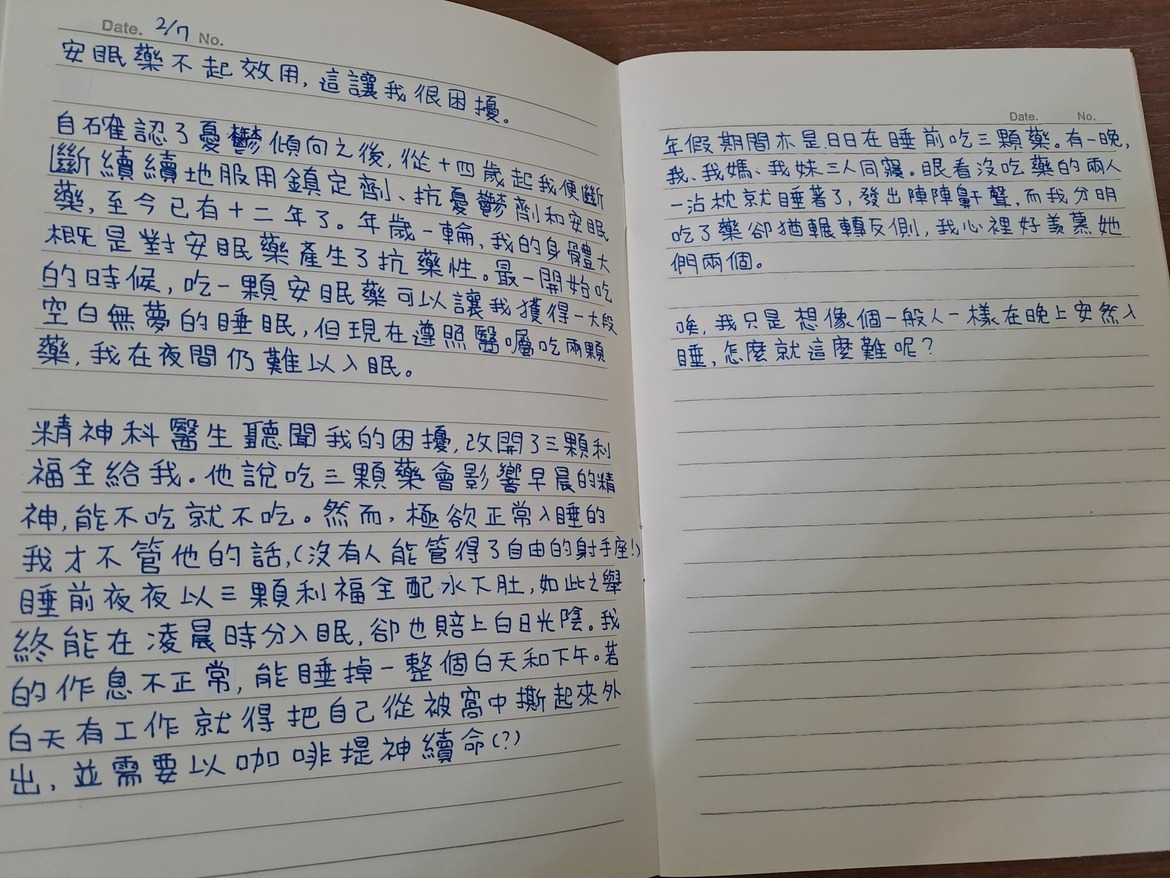 Date. 2/7 No.
安眠藥不起效用,這讓我很困擾。
自確認了憂鬱傾向之後,從十四歲起我便斷
斷續續地服用鎮定劑、抗憂鬱劑和安眠
藥,至今已有十二年了。年歲一輪,我的身體大
概是對安眠藥產生了抗藥性。最一開始吃
的時候,吃一顆安眠藥可以讓我獲得一大段
空白無夢的睡眠,但現在遵照醫囑吃兩顆
藥,我在夜間仍難以入眠。
精神科醫生聽聞我的困擾,改開了三顆利
福全給我。他說吃三顆藥會影響早晨的精
神,能不吃就不吃。然而,極欲正常入睡的
我才不管他的話,(沒有人能管得了自由的射手座!)
睡前夜夜以三顆利福全配水下肚,如此之舉
終能在凌晨時分入眠,卻也賠上白日光陰。我
的作息不正常,能睡掉一整個白天和下午。若
白天有工作就得把自己從被窩中撕起來外
出,並需要以咖啡提神續命(?)
Date. No.
年假期間亦是日日在睡前吃三顆藥。有一晚,
我、我媽、我妹三人同寢。眼看沒吃藥的兩人
一沾枕就睡著了,發出陣陣鼾聲,而我分明
吃了藥卻猶輾轉反側,我心裡好羨慕她
們兩個。
唉,我只是想像個一般人一樣在晚上安然入
睡,怎麼就這麼難呢?